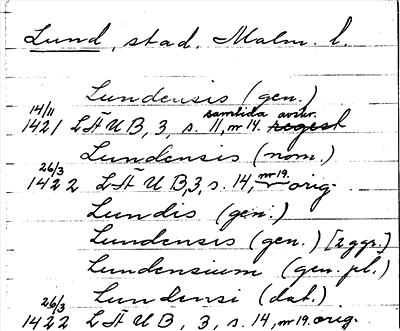 Lund, stad. Malm. l.
Lundensis (gen.)
14/11 samtida avskr.
1421 LÄUB, 3, s. 11, nr 14. regest
Lundensis (nom.)
26/3 nr 19.
1422 LÄUB, 3, s. 14, orig.
Lundis (gen.)
Lundensis (gen.) [2 ggr.]
Lundensium (gen. pl.)
Lundensi (dat.)
26/3
1422 LÄUB, 3, s. 14, nr 19. orig.